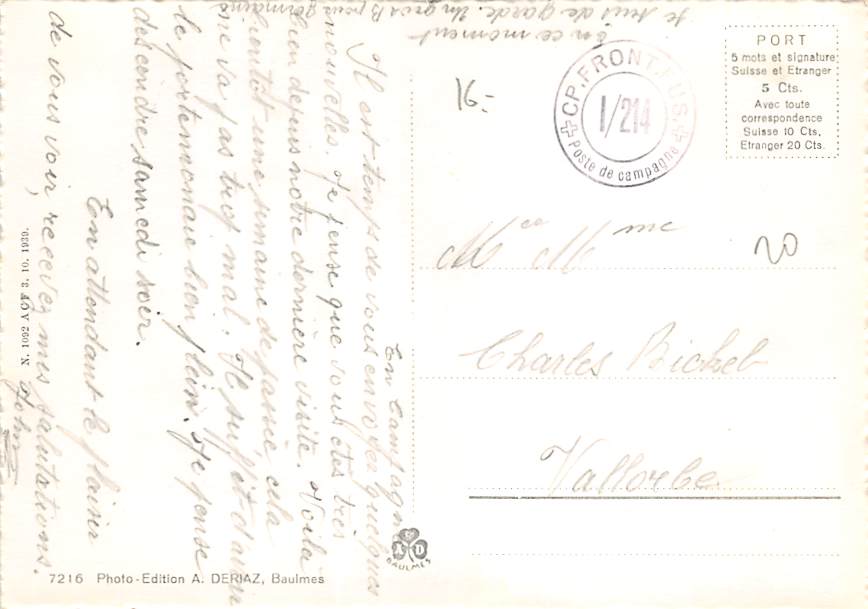 En Campagne
Il est temps de vous envoyer quelques
nouvelles. Je pense que vous êtes très
bien depuis notre dernière visite. Voilà
bientôt une semaine de passée cela
me va pas trop mal. Il suffit d'avoir
le portemonnaie bien plein. Je pense
descendre samedi soir.
En attendant le plaisir
de vous voir, recevez mes salutations.
John
En ce moment
je suis de garde. Un gros B pour germaine
16.-
CP. FRONT. FUS.
I/214
Poste de campagne
PORT
5 mots et signature
Suisse et Etranger
5 Cts.
Avec toute
correspondence
Suisse 10 Cts.
Etranger 20 Cts.
20
Mr et Mme
Charles Bichel
Vallorbe
N. 1092 A C F 3. 10. 1939.
A D
BAULMES
7216 Photo-Edition A. DERIAZ, Baulmes